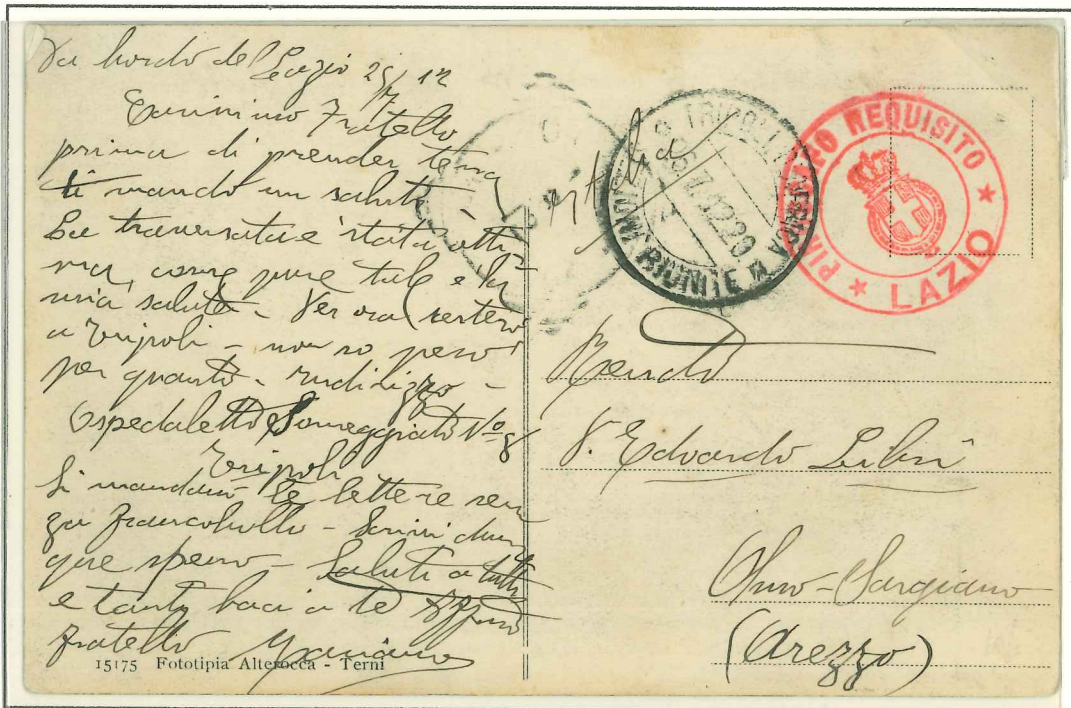 Da bordo del Lazio 25/7 12
Carissimo Fratello
prima di prender terra
ti mando un saluto
La traversata è stata otti
ma, come pure tale è la
mia salute - Per ora resterò
a Tripoli - non so però
per quanto - indirizzo -
Ospedaletto Someggiato No 8
Tripoli
Si mandano le lettere sen
za francobollo - Scrivi dun
que spesso - Saluti a tutti
e tanti baci a te Affmo
fratello
15175 Fototipia Alterocca - Terni
TRIPOLI
RIUNITE
PIROSCAFO REQUISITO
★ LAZIO ★
Rendo
P. Edoardo
Olmo - Sargiano
(Arezzo)